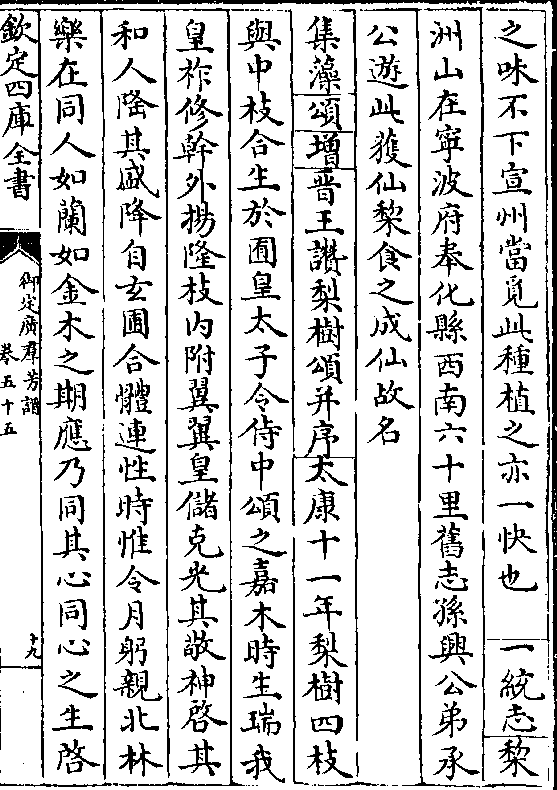 之味不下宣州當覓此種植之亦一快也　一統志棃
洲山在寧波府奉化縣西南六十里舊志孫興公弟承
公遊此獲仙棃食之成仙故名
集藻頌增晉王讚梨樹頌并序太康十一年梨樹四枝
與中枝合生於圃皇太子令侍中頌之嘉木時生瑞我
皇祚修幹外揚隆枝内附翼翼皇儲克光其敬神啓其
和人隆其盛降自玄圃合體連性時惟令月躬親北林
樂在同人如蘭如金木之期應乃同其心同心之生啓
欽定四庫全書
御定廣羣芳譜
卷五十五
十九